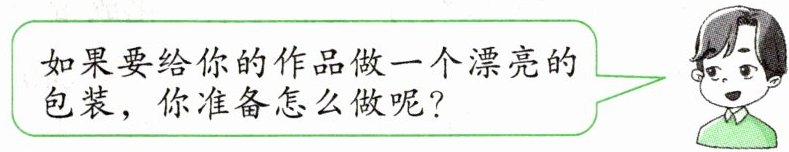 如果要给你的作品做一个漂亮的
包装，你准备怎么做呢？